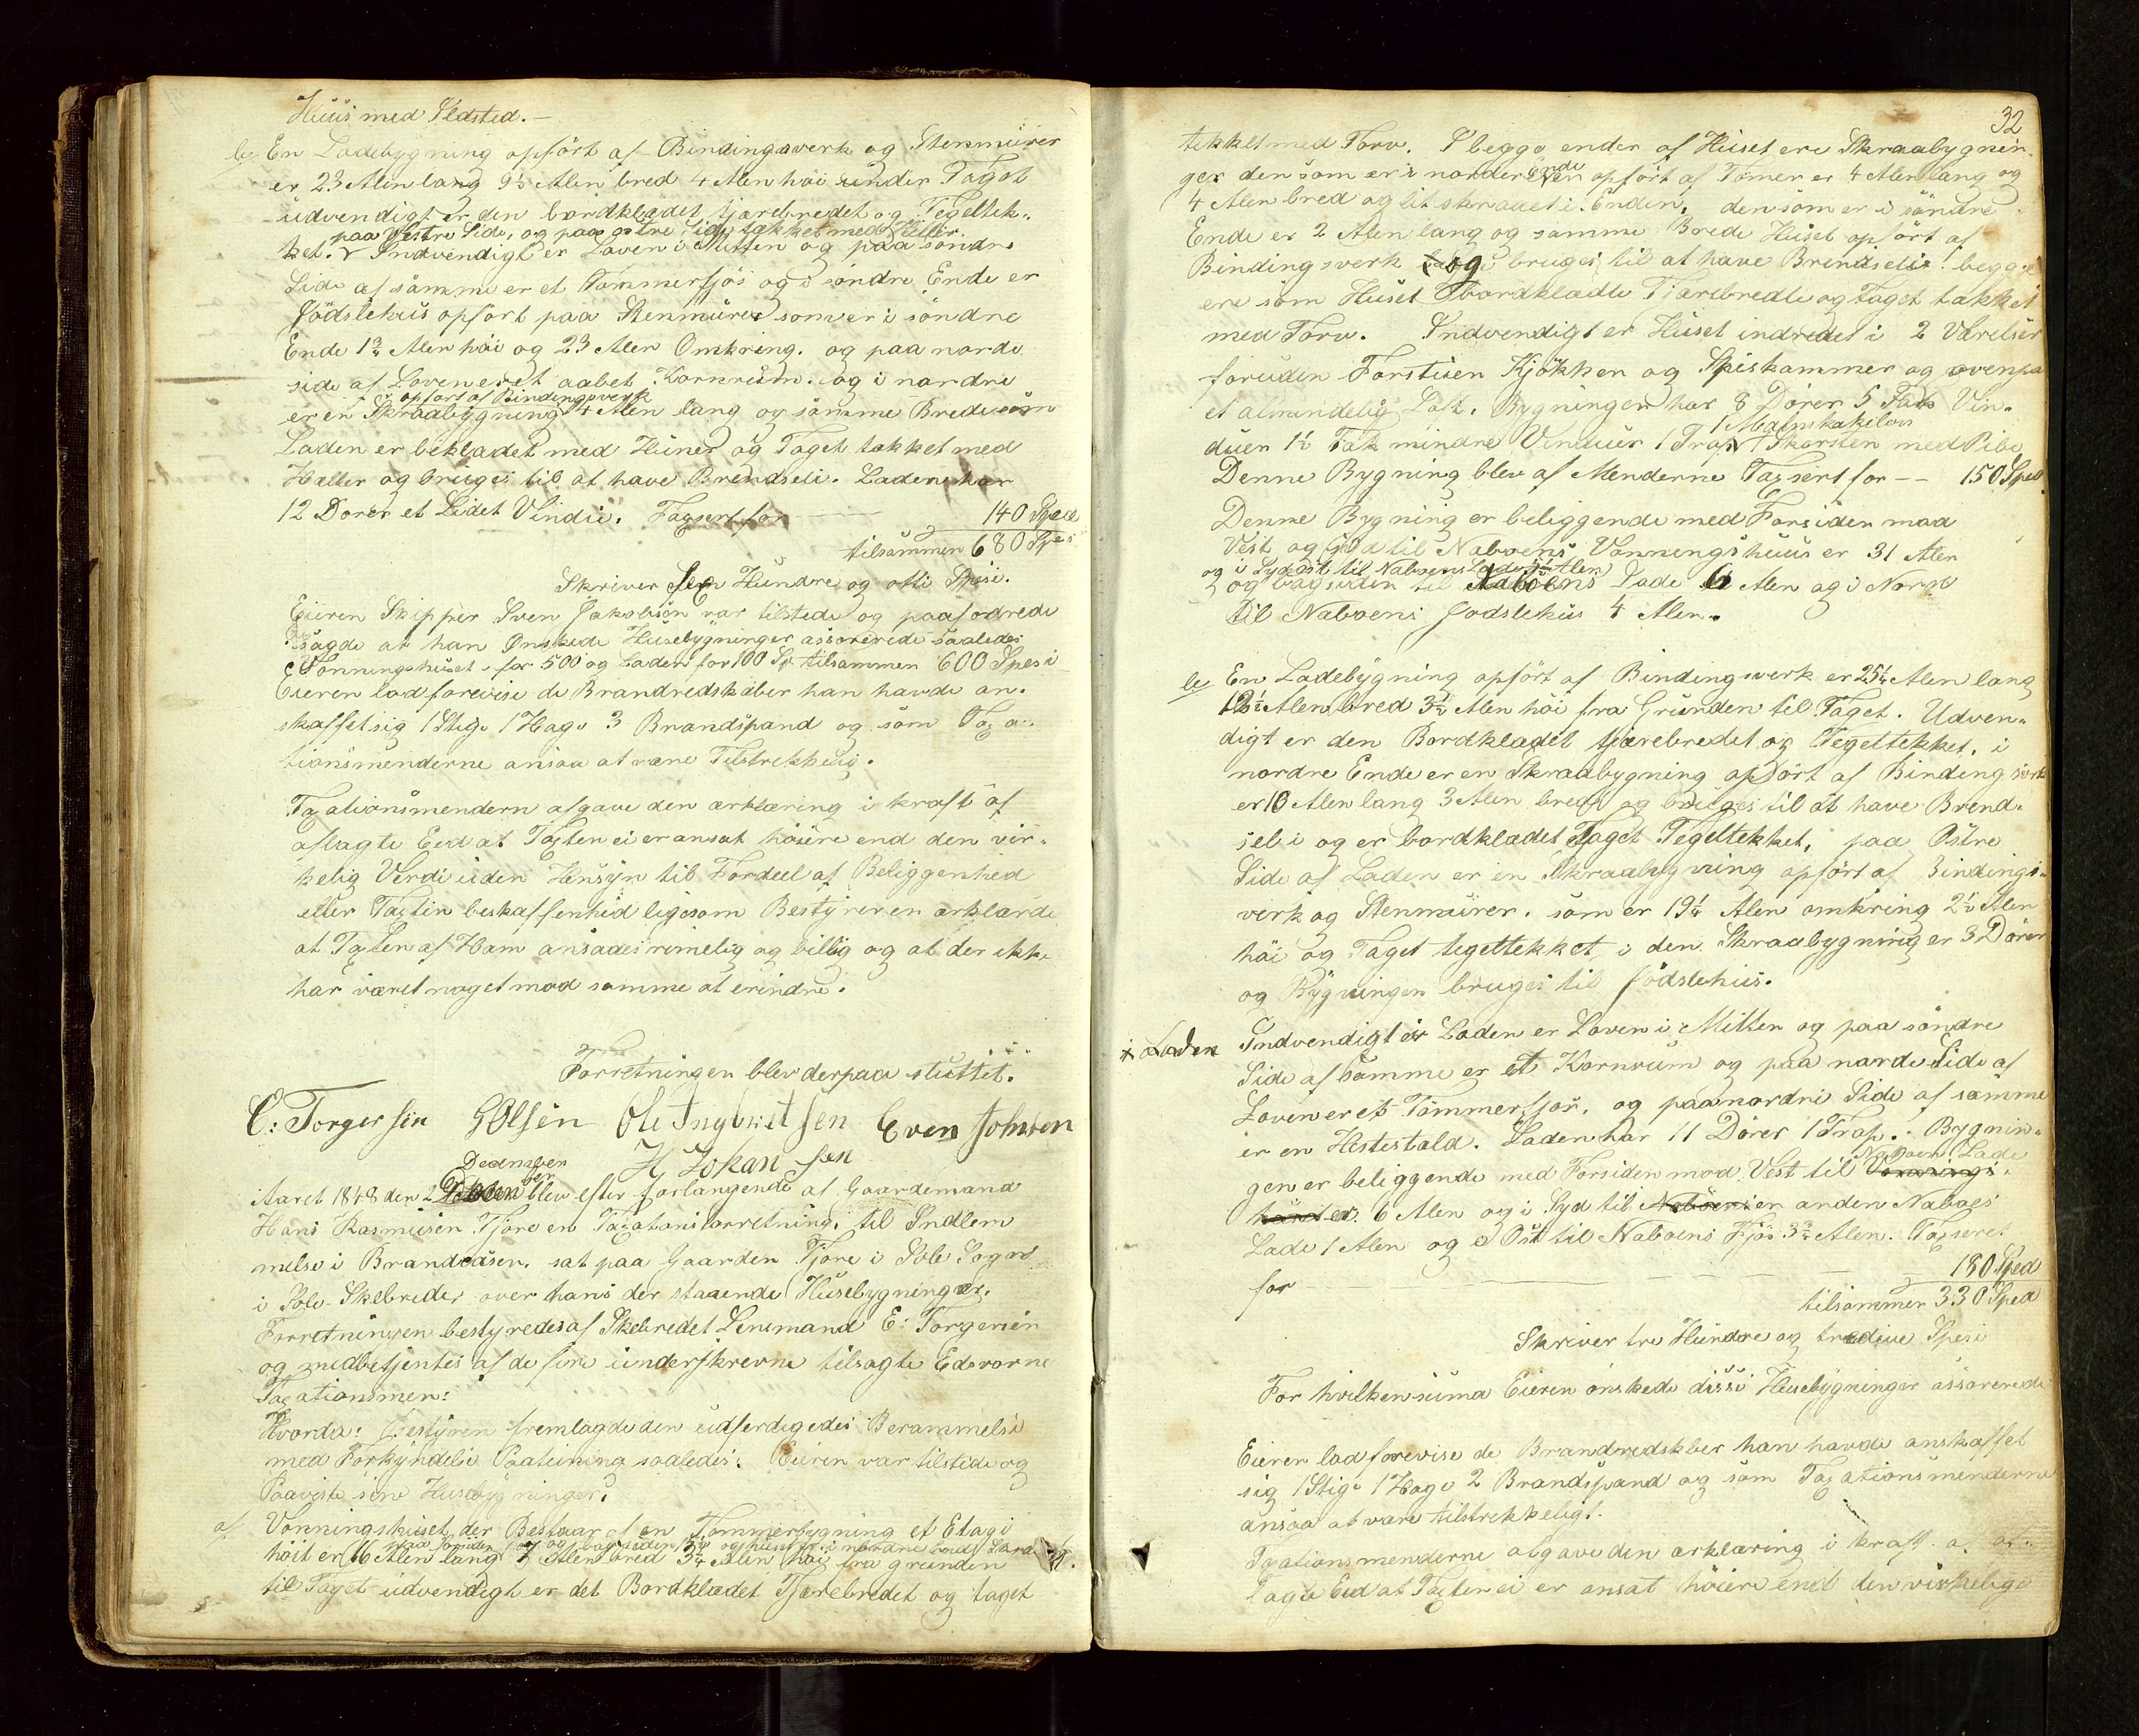 Huus med Ildsted.-
b, En Ladebygning opfört af Bindingsverk og Stenmurer
er 23 Alen lang 9½ Alen bred 4 Alen höi under Taget
udvendigt er den bordklædet tjærebredet og Tegeltek-
paa Vestre Side, og paa østre Side tækket med Heller.
ket. Indvendigt er Loven i Mitten og paa søndre
Side af samme er et Tömmerfjös og i søndre Ende er
Födslehus opført paa Stenmürer som er i söndre
Ende 1¾ Alen höi og 23 Alen Omkring. og paa nordre
side af Loven er et aabet Kornrüm. og i nordre
opfört af Bindingsverk
er en Skraabygning 4 Alen lang og samme Brede som
Laden er bekladet med Huner og Taget tækket med
Heller og bruges til at have Brendseli. Laden har
12 Dorer et Lidet Vindü. Taxsert for — 140 Spd
tilsammen 680 Spes
Skriver Sex Hundre og otti Spesi.
Eieren Skipper Sven Jakobsen var tilstede og paafodrede
sagde at han Ønskede Husebygninger assorerede saaledes
Vonningshuset for 500 og Laden for 100 Sp tilsammen 600 Spesi
Eieren lod forevise de Brandredskaber han havde an-
skaffet sig 1 Stige 1 Hage 3 Brandspand og som Taxa-
tionsmenderne ansaa at være Tilstrekkelig.
Taxationsmendern afgave den ærklæring i kraft af
aflagte Eed at Taxten ei er ansat höiere end den vir-
kelig Verdi uden Hensyn til Fordeel af Beliggenhed
eller Taxtin beskaffenhed ligesom Bestyreren ærklærde
at Taxten af Ham ansaaes rimelig og billig og at der ikke
har været noget mod samme at erindre.
Forretningen blev derpaa sluttet.
E: Torgersen GOlsen Ole Ingbretsen Even Johnsen
H Johansen
December
Aaret 1848 den 2 blev efter forlangende af Gaardemand
Hans Rasmusen Tjore en Taxationsforretning til Indlem
melse i Brandcasen. sat paa Gaarden Tjore i Sole Sogn
i Sole Skebrede, over hans der staaende Husebygninger.
Forretningen bestyredes af Skebredet Lensmand E: Torgersen
og medbetjentes af de fire underskrevne tilsagte Edsvorne
Taxationsmen:
Hvorda: Bestyren fremlagde den udferdigedes Berammelse
med Forkyndelse Paateining saaledes: Eieren var tilstede og
Paaviste sine Husebygninger.
a, Vonningshuset der Bestaar af en Tömmerbygning et Etagi
höit er 16 Alen lang 7 Alen bred 3¼ Alen höi fra grunden
til Taget udvendigt er det Bordklædet Tjærebredet og taget
32
tekket med Torv. I begge ender af Huset ere Skraabygnin-
ger den som er i nordre Ende opfört af Tömer er 4 Alen lang og
4 Alen bred og lit skraaet i Enden, den som er i söndre
Ende er 2 Alen lang og samme Brede Huset opfört af
Bindingsverk og bruges til at have Brendseli. begge
ere som Huset bordkladte Tjærebredte og Taget tækket
med Torv. Indvendigt er Huset indredet i 2 Værelser
foruden Forstuen Kjökken og Spiskammer og ovenpa
et almindelig Loft. Bygningen har 8 Dörer 5 Fags Vin-
1 Malmkakelovn
duer 1½ Fak mindre Vinduer 1 Trap, 1 Skorsten med Pibe
Denne Bygning blev af Menderne Taxsert for -- 150 Sped
Denne Bygning er beliggende med Forsiden mod
Vest og Syd til Naboens Vonningshuus er 31 Alen
og i Sydost til Naboens Lade 5½ Alen
og bagsiden til Naboens Lade 6 Alen og i Nord
til Naboens Fodslehus 4 Alen.
b, En Ladebygning opfört af Bindingsverk er 25¼ Alen lang
12½ Alen bred 3½ Alen höi fra Grunden til Taget. Udven-
digt er den Bordkladet tjærebredet og Tegeltekket. i
nordre Ende er en Skraabygning opfört af Bindingsverk
er 10 Alen lang 3 Alen bred og bruges til at have Brend-
seli og er bordkladet Taget Tegeltekket, paa Østre
Side af Laden er en Skraabygning opfört af Bindings-
verk og Stenmürer. som er 19¼ Alen omkring 2½ Alen
höi og Taget tegeltekket, i den Skraabygning er 3 Dörer
og Bygningen bruges til Födslehus.
i Laden Indvendigt er Laden er Loven i Mitten og paa söndre
Side af samme er et Kornrum og paa nordre Side af
Loven er et Tömmerfjos, og paa nordre Side af samme
er en Hestestald. Laden har 11 Dörer 1 Trap. Bygnin-
Naboens Lade
gen er beliggende med Forsiden mod Vest til Vonnings-
huset er 6 Alen og i Syd til Naboens en anden Naboes
Lade 1 Alen og i Öst til Naboens Fjös 3¾ Alen. Taxseret
for — 180 Sped
tilsammen 330 Sped
Skriver tre Hundre og tredive Spesi
For hvilken suma Eieren önskede dissi Husebygninger assorerede
Eieren lod forevise de Brandredskber han havde anskaffet
sig 1 Stige 1 Hage 2 Brandspand og som Taxationsmenderne
ansaa at være tilstrekkeligt.
Taxationsmenderne afgave den ærklæring i kraft af af-
lagte Eed at Taxten ei er ansat höiere end den virkelige